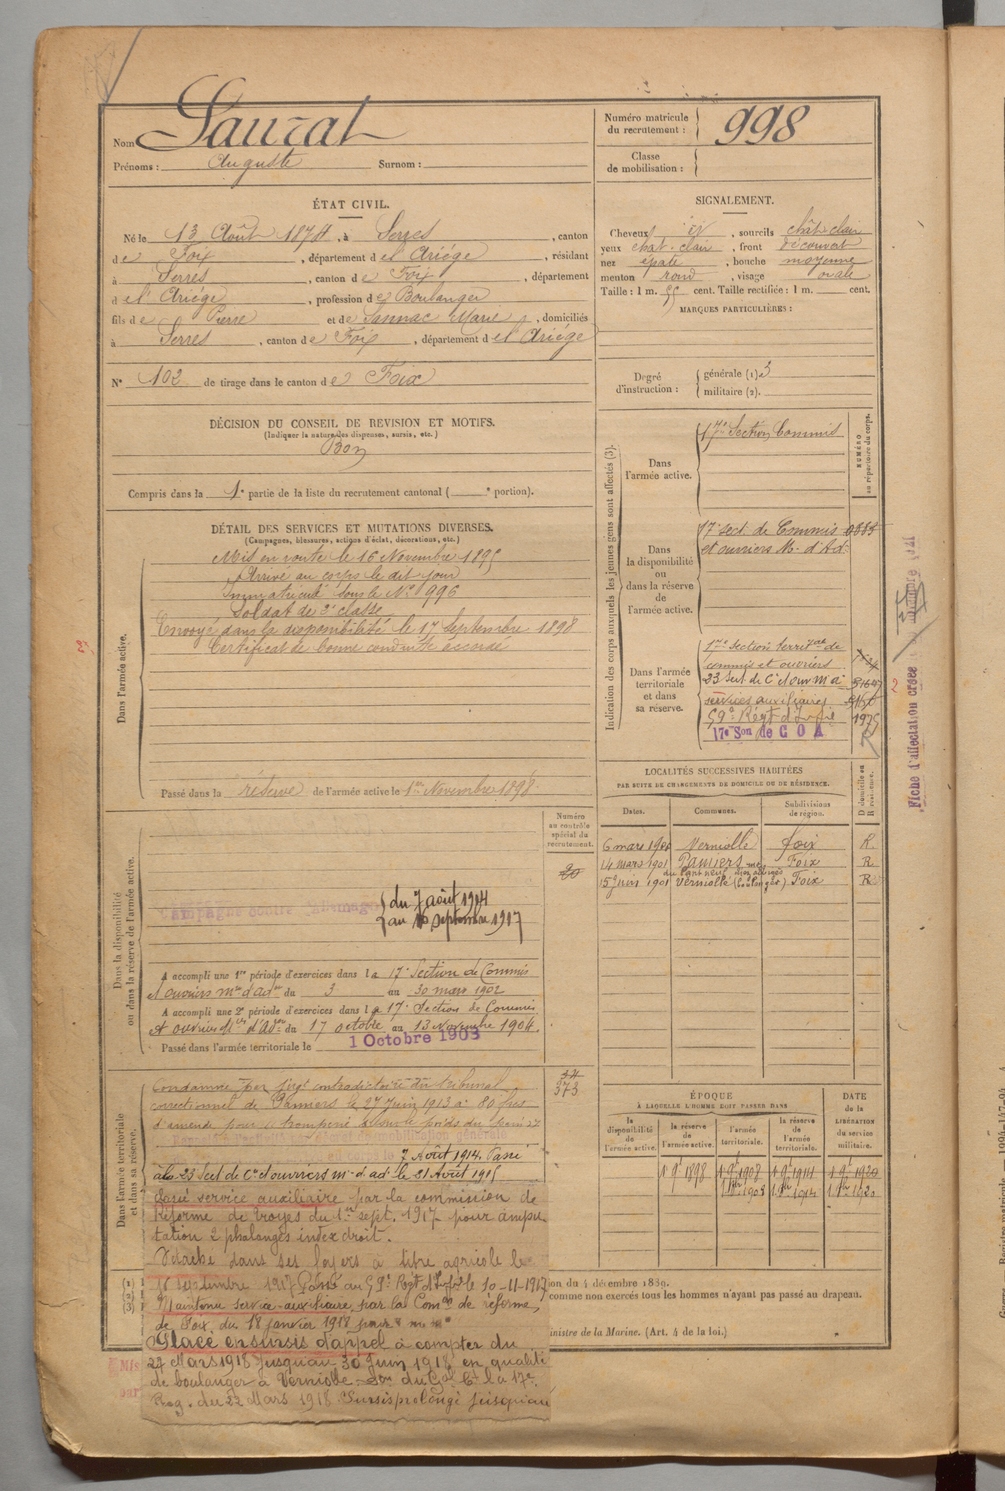 Nom Sauzat
Prénoms : Auguste Surnom :
Numéro matricule du recrutement : 998
Classe de mobilisation :
ÉTAT CIVIL.
Né le 13 Août 1874, à Serres, canton
de Foix, département de l'Ariège, résidant
à Serres, canton de Foix, département
de l'Ariège, profession de Boulanger
fils de Pierre et de Sannac Marie, domiciliés
à Serres, canton de Foix, département de l'Ariège
N° 102 de tirage dans le canton de Foix
SIGNALEMENT.
Cheveux et, sourcils chât-clair
yeux chat-clair, front découvert
nez épaté, bouche moyenne
menton rond, visage ovale
Taille : 1 m. 55 cent. Taille rectifiée : 1 m. cent.
MARQUES PARTICULIÈRES :
Degré d'instruction : générale (1) 3
militaire (2).
DÉCISION DU CONSEIL DE REVISION ET MOTIFS.
(Indiquer la nature des dispenses, sursis, etc.)
Bon
Compris dans la 1e partie de la liste du recrutement cantonal ( e portion).
DÉTAIL DES SERVICES ET MUTATIONS DIVERSES.
(Campagnes, blessures, actions d'éclat, décorations, etc.)
Dans l'armée active.
Mis en route le 16 Novembre 1895
Arrivé au corps le dit jour
Immatriculé sous le N° 996
Soldat de 2e classe
Envoyé dans la disponibilité le 17 Septembre 1898
Certificat de bonne conduite accordé
Passé dans la réserve de l'armée active le 1er Novembre 1898
Indication des corps auxquels les jeunes gens sont affectés (3).
NUMÉRO au répertoire du corps.
Dans l'armée active.
17e Section Commis
Dans la disponibilité ou dans la réserve de l'armée active.
17e sect. de Commis
et ouvriers M. d'Ad.
Dans l'armée territoriale et dans sa réserve.
17e Section territ ale de
commis et ouvriers
23 Sect. de C et ouv m a
services auxiliaires
59e Régt d'Inf ie
1975
17e Son de C O A
Fiche d'affectation créée
LOCALITÉS SUCCESSIVES HABITÉES
PAR SUITE DE CHANGEMENTS DE DOMICILE OU DE RÉSIDENCE.
Dates. Communes. Subdivisions de région. D domicile ou R résidence.
6 mars Verniolle Foix R.
14 mars 1901 Pamiers Foix R
15 juin 1901 Verniolle Foix R
Numéro au contrôle spécial du recrutement.
20
Dans la disponibilité ou dans la réserve de l'armée active.
Campagne contre l'Allemagne
du 7 août 1914
au 16 septembre 1917
A accompli une 1re période d'exercices dans la 17e Section de Commis
et ouvriers mres d'adon du 3 au 30 mars 1902
A accompli une 2e période d'exercices dans la 17e Section de Commis
et ouvriers d'Adon du 17 octobre au 13 Novembre 1904.
Passé dans l'armée territoriale le 1 Octobre 1908
Dans l'armée territoriale et dans sa réserve.
373
Condamné par jugt contradictoire du tribunal
correctionnel de Pamiers le 27 Juin 1913 à 80 frcs
d'amende pour tromperie sur le poids du pain
7 Août 1914. Passé
à la 23 Sect de C et ouvriers m d'ad le 21 Août 1915
Classé service auxiliaire par la commission de
Réforme de Troyes du 1er sept. 1917 pour ampu
tation 2 phalanges index droit.
Détaché dans ses foyers à titre agricole le
16 septembre 1917 Passé au 59e Regt d'Infie le 10-11-1917
Maintenu service auxiliaire par la Comon de réforme
de Foix du 18 janvier 1918 pour
Placé en sursis d'appel à compter du
27 Mars 1918 jusqu'au 30 Juin 1918 en qualité
de boulanger à Verniolle du Gal Ct la 17e
Rég. du 22 Mars 1918. Sursis prolongé jusqu'au
ÉPOQUE
À LAQUELLE L'HOMME DOIT PASSER DANS
la disponibilité de l'armée active. la réserve de l'armée active. l'armée territoriale. la réserve de l'armée territoriale.
DATE de la LIBÉRATION du service militaire.
1 9e 1898 1 9e 1908 1 9e 1914 1 9e 1920
ion du 4 décembre 1889.
comme non exercés tous les hommes n'ayant pas passé au drapeau.
inistre de la Marine. (Art. 4 de la loi.)